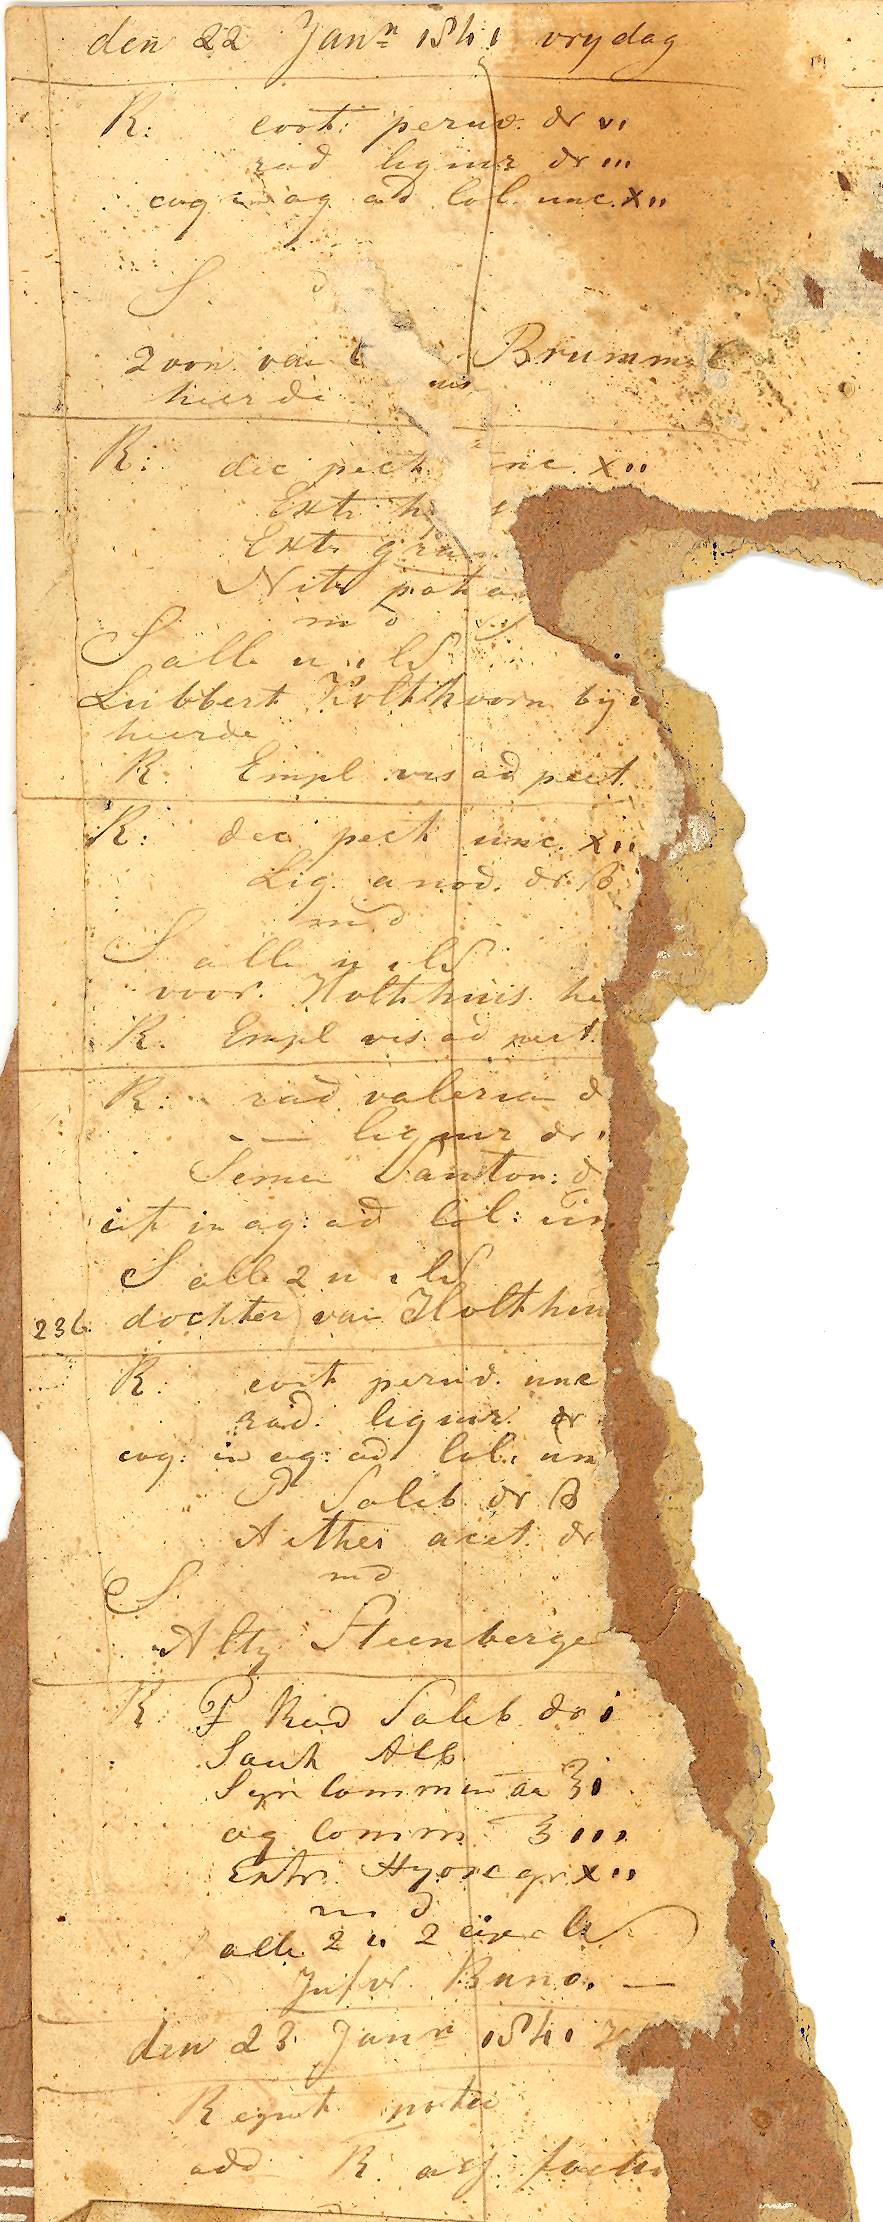 den 22 Jann 1841 vrydag
R: cort: peruv. dr vi
rad liquir dr iii
coq in aq ad Col. unc. xii
S. d
zoon van Brumm
heerde
R: dec pect unc. xii
Extr h
Extr gram
Nitr potas
m d
S alle u 1 lS
Lubbert Holthoorn by
heerde
R. Empl vis ad pect.
R: dec pect unc. xii
Liq. anod. dr. ß
m d
S alle u 1 lS
voor. Holthuis he
R. Empl vis. ad pect.
R: rad valerian d
— liquir dr
Semen Santon: d
inf in aq: ad Col: un
S alle 2 u 1 lS
236. dochter van Holthui
R. cort peruv. unc
rad. liquir. dr
coq: in aq: ad Col. un
P Saleb dr ß
Aether acet. dr
m d
S.
Alty Steenberge
R P Rad Saleb dr i
Sach Alb.
Syr Commun aa ʒi
aq comm. ℥iii
Extr. Hyosc gr. xii
m d
alle 2 u 2 l
Jufvr Bano. —
den 23 Jann 1841
R
add R.